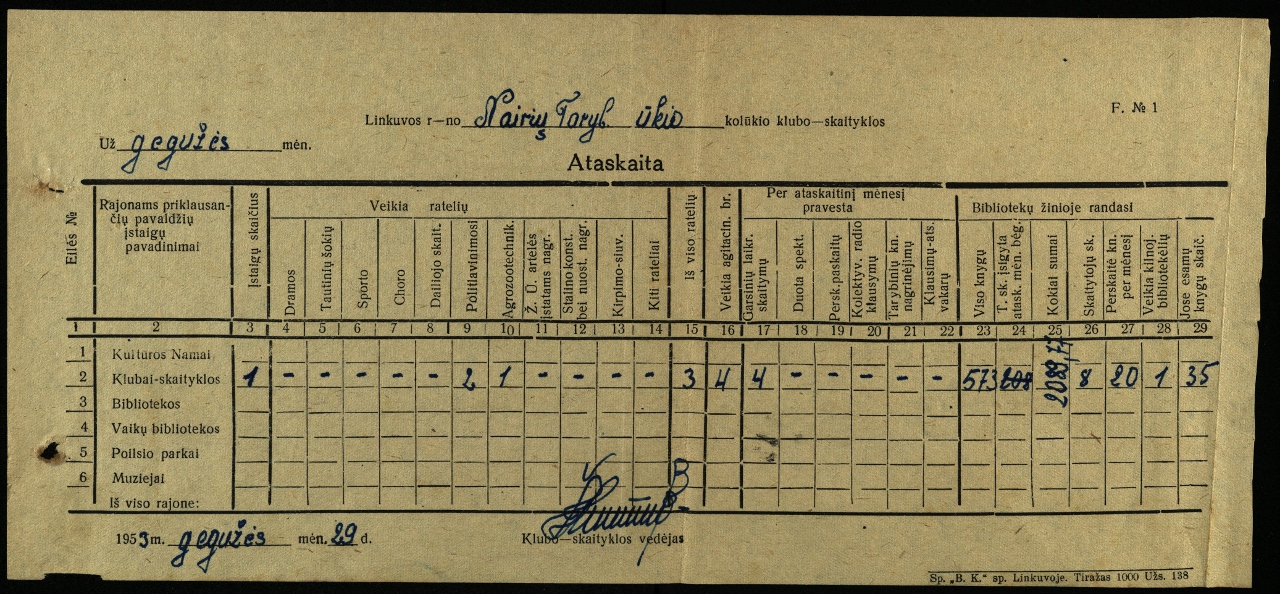 F. № 1
Linkuvos r—no Nairių Taryb. ūkio kolūkio klubo—skaityklos
Už gegužės mėn.
Ataskaita
Eilės №
Rajonams priklausan-
čių pavaldžių
įstaigų
pavadinimai
Įstaigų skaičius
Veikia ratelių
Dramos
Tautinių šokių
Sporto
Choro
Dailiojo skait.
Politlavinimosi
Agrozootechnik.
Ž. Ū. artelės
įstatams nagr.
Stalino konst.
bei nuost. nagr.
Kirpimo-siuv.
Kiti rateliai
Iš viso ratelių
Veikia agitacin. br.
Per ataskaitinį mėnesį
pravesta
Garsinių laikr.
skaitymų
Duota spekt.
Persk.paskaitų
Kolektyv. radio
klausymų
Tarybinių kn.
nagrinėjimų
Klausimų-ats.
vakarų
Bibliotekų žinioje randasi
Viso knygų
T. sk. įsigyta
atask. mėn. bėg.
Kokiai sumai
Skaitytojų sk.
Perskaitė kn.
per mėnesį
Veikia kilnoj.
bibliotekėlių
Jose esamų
knygų skaič.
1 2 3 4 5 6 7 8 9 10 11 12 13 14 15 16 17 18 19 20 21 22 23 24 25 26 27 28 29
1 Kultūros Namai
2 Klubai-skaityklos 1 - - - - - 2 1 - - - - 3 4 4 - - - - - 573 208 2082,77 8 20 1 35
3 Bibliotekos
4 Vaikų bibliotekos
5 Poilsio parkai
6 Muziejai
Iš viso rajone:
1953 m. gegužės mėn. 29 d.
Klubo—skaityklos vedėjas
Sp. „B. K.“ sp. Linkuvoje. Tiražas 1000 Užs. 138